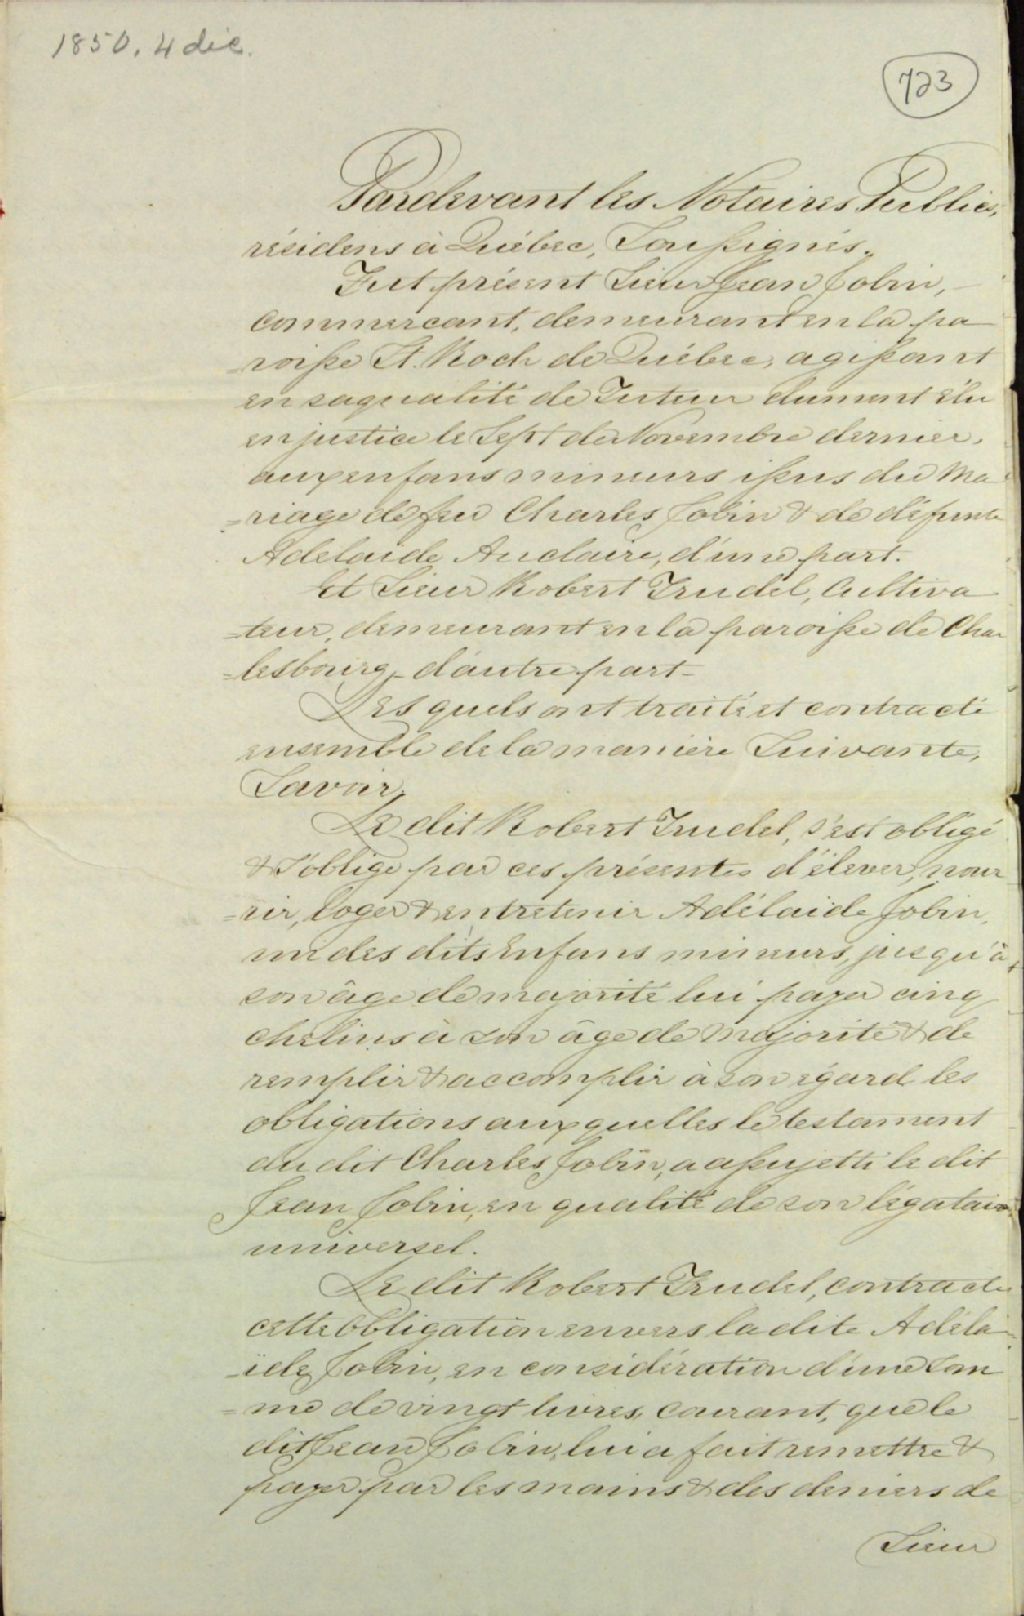 1850. 4 déc.
723
Pardevant les Notaires Publics,
résidens à Québec, Soussignés.
Fut présent Sieur Jean Jobin,
commercant, demeurant en la pa
-roisse St. Roch de Québec, agissant
en sa qualité de Tuteur dument élu
en justice le Sept de Novembre dernier,
aux enfans mineurs issus du Ma
=riage de feu Charles Jobin & de défunte
Adelaide Auclaire, d'une part.
Et Sieur Robert Trudel, Cultiva
-teur, demeurant en la paroisse de Char
=lesbourg, d'autre part-
Lesquels ont traité et contracté
ensemble de la manière Suivante,
Savoir,
Le dit Robert Trudel, s'est obligé
& s'oblige par ces présentes d'élever, nour
-rir, loger & entretenir Adélaide Jobin,
un des dits Enfans mineurs, jusqu'à
son âge de majorité lui payer cinq
chelins à son âge de Majorité & de
remplir & accomplir à son égard les
obligations auxquelles le testament
du dit Charles Jobin, a assujetti le dit
Jean Jobin, en qualité de son légataire
universel.
Le dit Robert Trudel, contracte
cette Obligation envers la dite Adéla
-ide Jobin, en considération d'une som
=me de vingt livres, courant, que le
dit Jean Jobin, lui a fait remettre &
payer par les mains & des deniers de
Sieur